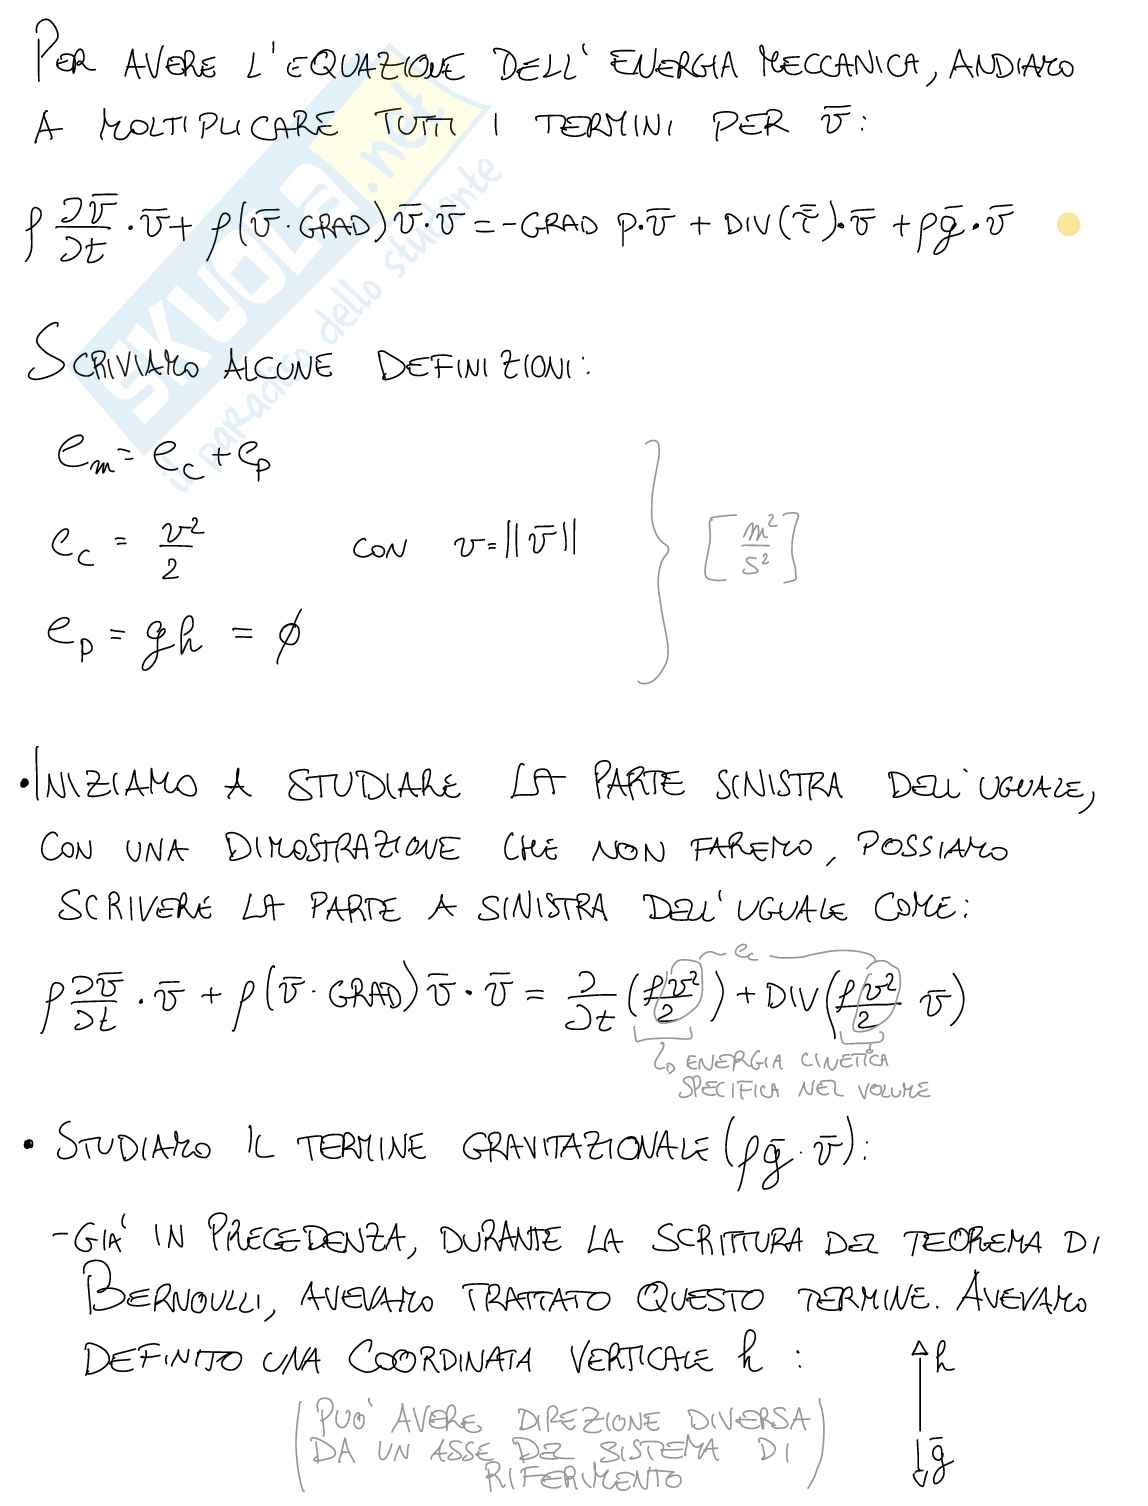 PER AVERE L'EQUAZIONE DELL'ENERGIA MECCANICA, ANDIAMO
A MOLTIPLICARE TUTTI I TERMINI PER v̄:
ρ ∂v̄/∂t · v̄ + ρ(v̄ · GRAD) v̄ · v̄ = -GRAD p · v̄ + DIV(τ̿) · v̄ + ρḡ · v̄
SCRIVIAMO ALCUNE DEFINIZIONI:
e_m = e_c + e_p
e_c = v²/2 CON v = ||v̄||
[m²/s²]
e_p = gh = ϕ
• INIZIAMO A STUDIARE LA PARTE SINISTRA DELL'UGUALE,
CON UNA DIMOSTRAZIONE CHE NON FAREMO, POSSIAMO
SCRIVERE LA PARTE A SINISTRA DELL'UGUALE COME:
e_c
ρ ∂v̄/∂t · v̄ + ρ(v̄ · GRAD) v̄ · v̄ = ∂/∂t (ρ v²/2) + DIV(ρ v²/2 v̄)
ENERGIA CINETICA
SPECIFICA NEL VOLUME
• STUDIAMO IL TERMINE GRAVITAZIONALE (ρḡ · v̄):
- GIA' IN PRECEDENZA, DURANTE LA SCRITTURA DEL TEOREMA DI
BERNOULLI, AVEVAMO TRATTATO QUESTO TERMINE. AVEVAMO
DEFINITO UNA COORDINATA VERTICALE h :
h
(PUO' AVERE DIREZIONE DIVERSA
DA UN ASSE DEL SISTEMA DI
RIFERIMENTO)
ḡ
SKUOLA.net
il paradiso dello studente